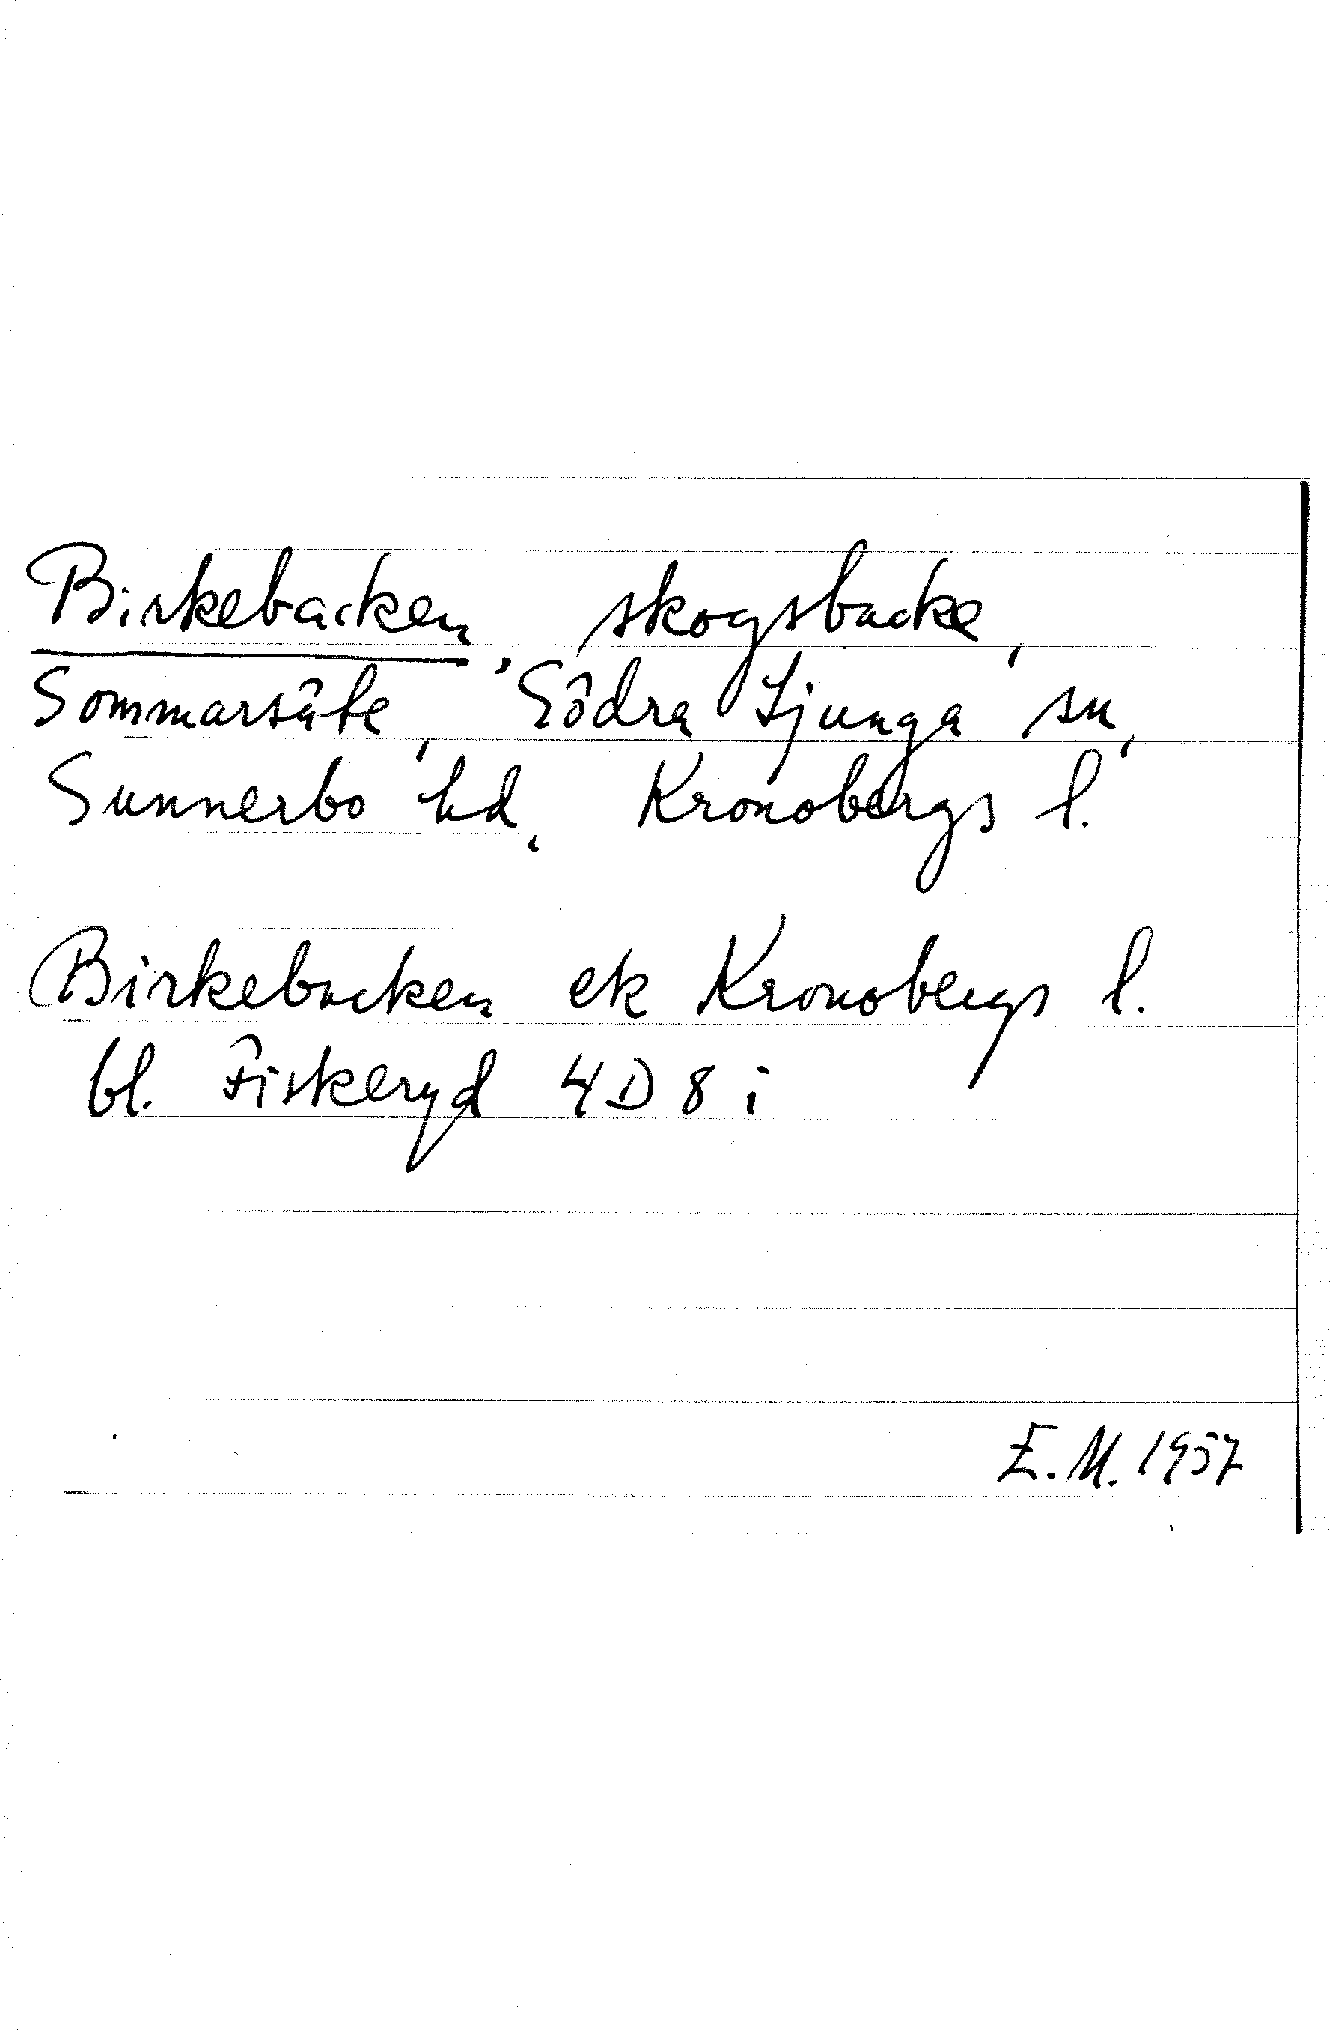 Birkebacken, skogsbacke,
Sommarsäte, Södra Ljunga sn,
Sunnerbo hd, Kronobergs l.
Birkebacken ek Kronobergs l.
bl. Fiskeryd 4D8i
E.M. 1957